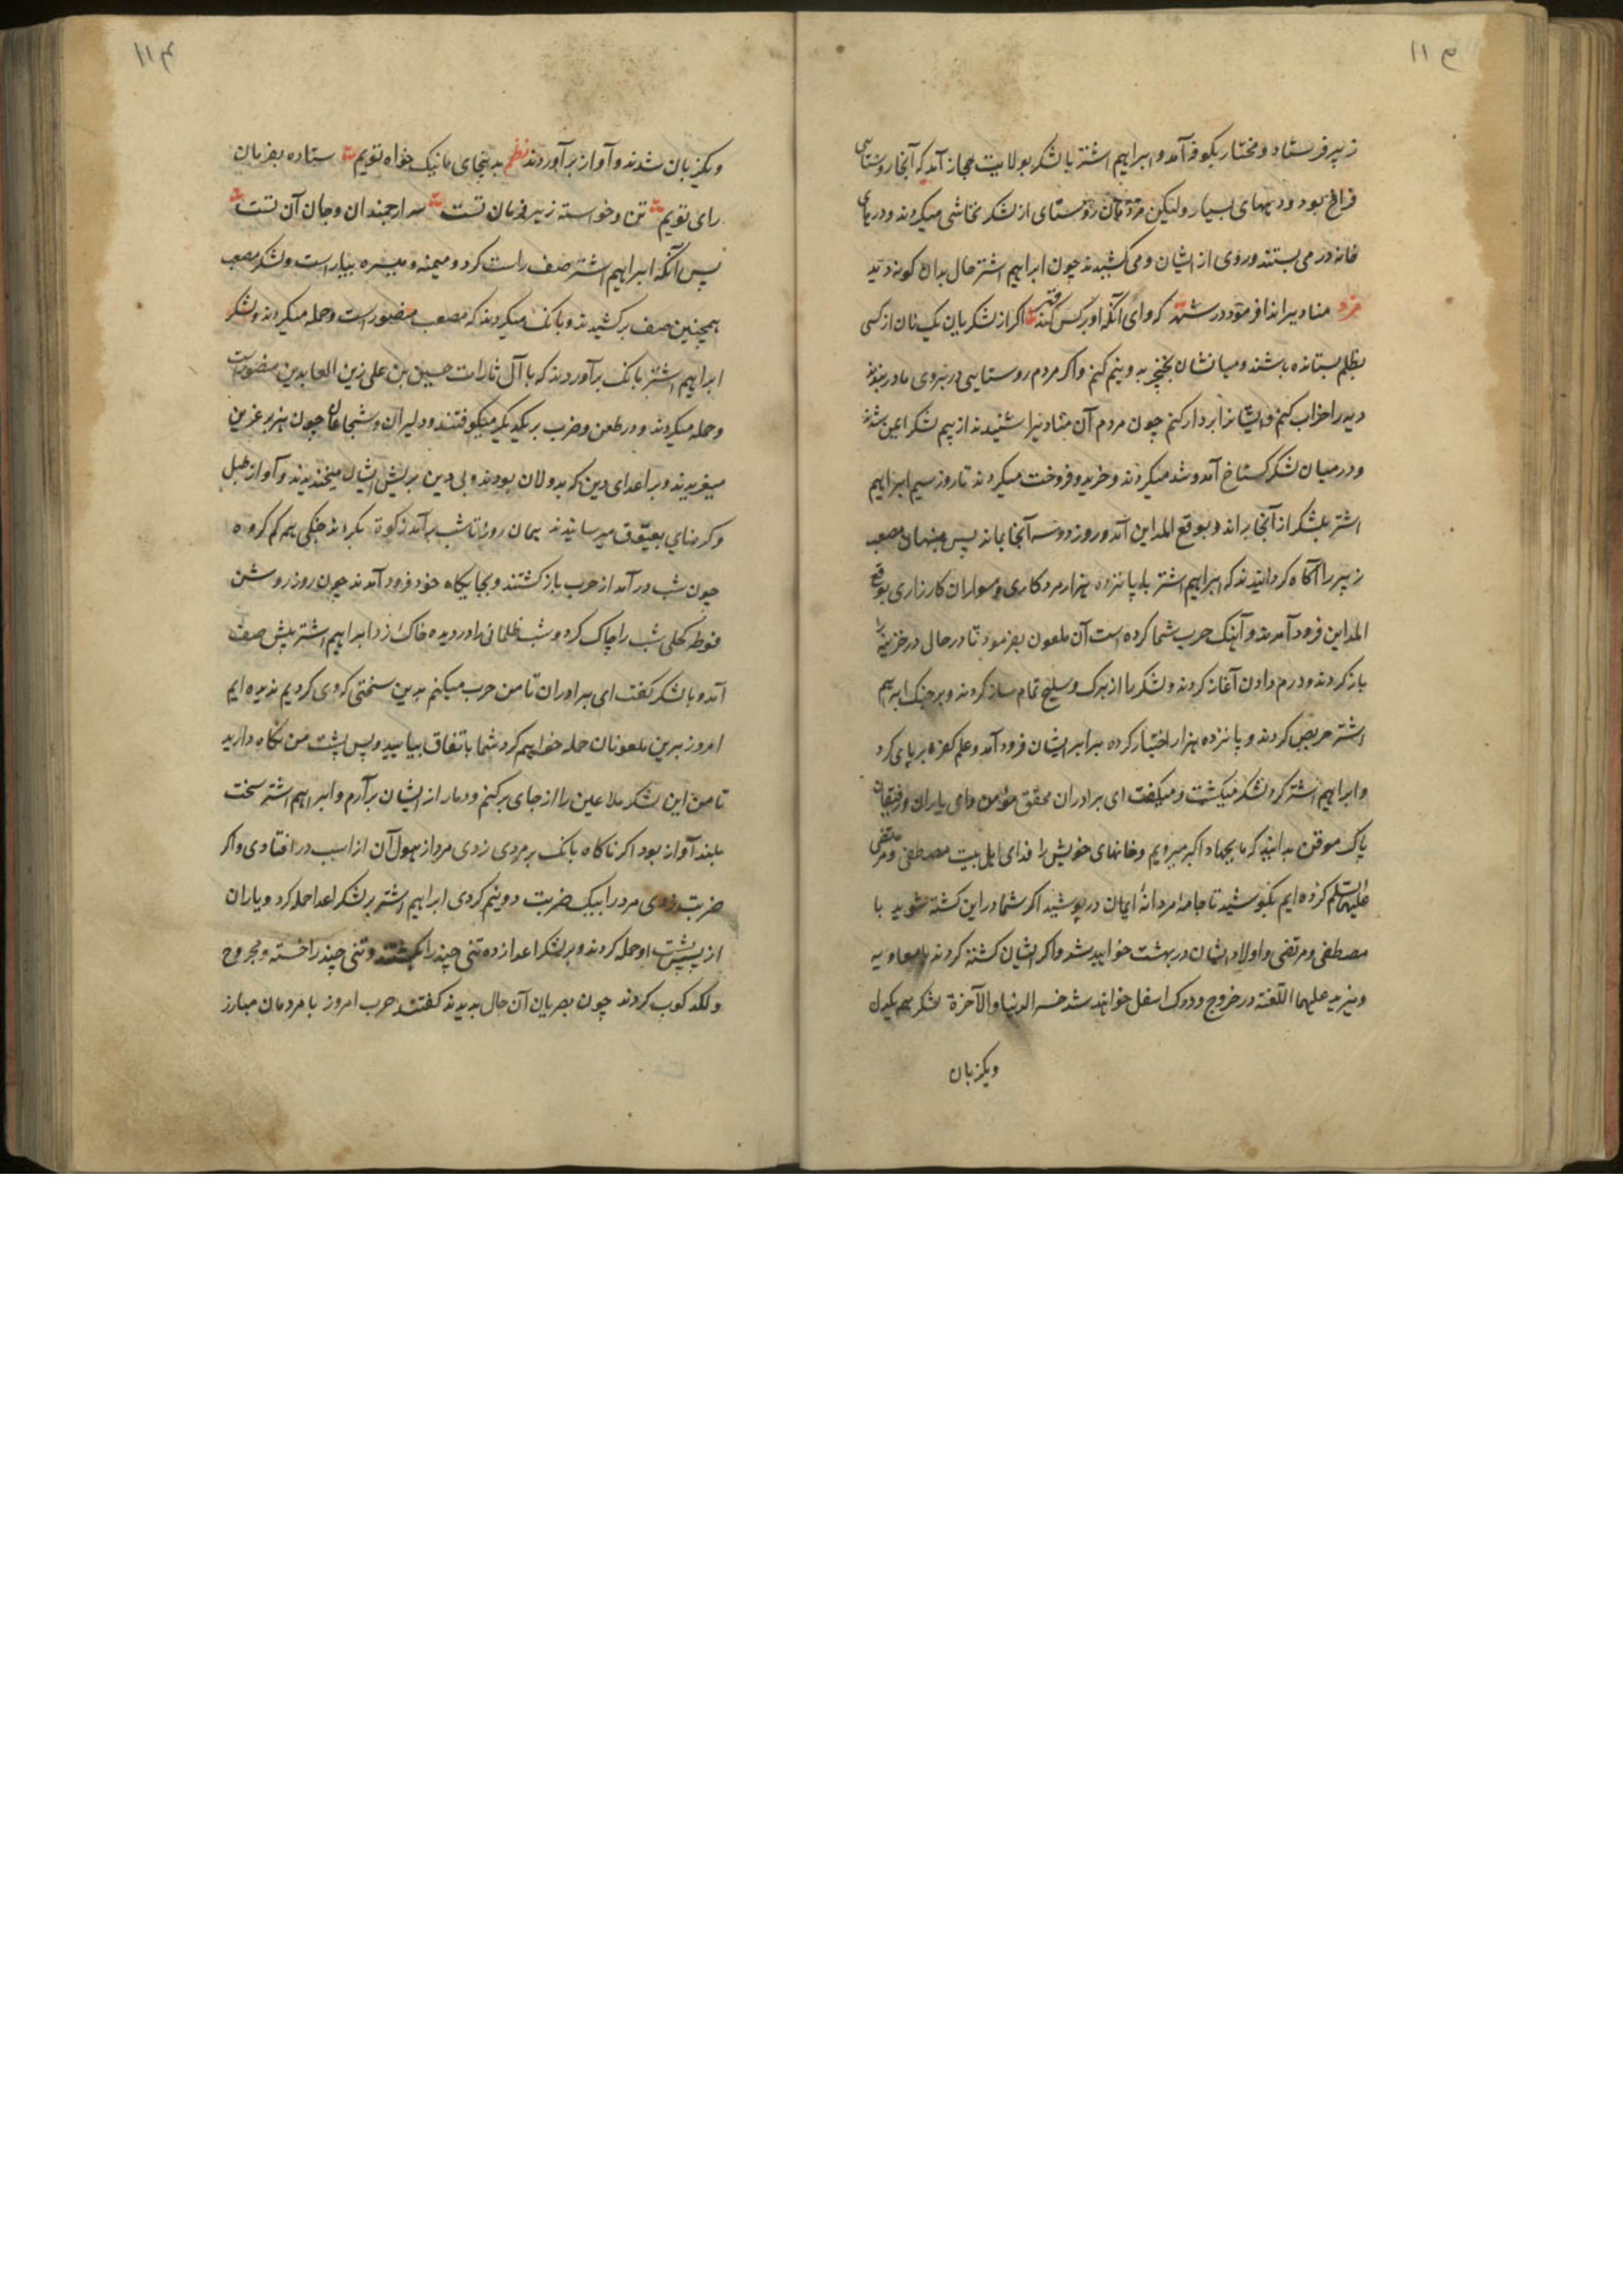 زبیر فرستاد و مختار بکوفه آمد و ابراهیم اشتر با لشکر بولایت مجاز آمد که آنجا روستایی
فراخ بود و دیههای بسیار ولیکن مردمان روستای از لشکر تحاشی میکردند و درهای
خانه در می بستند و روی از ایشان می کشیدند چون ابراهیم اشتر حال بدان کونه دید
منادیرا ندا فرمود در که وای آنکه او بر کس کند اکر از لشکریان یک نان از کسی
بظلم بستانده باشند و میانشان بخنجر بدو نیم کنم و اکر مردم روستایی در بروی ما در بندند
دیه را خراب کنم و ایشانرا بر دار کنم چون مردم آن منادیرا شنیدند از بیم لشکر ایمن شدند
و در میان لشکر کستاخ آمد و شد میکردند و خرید و فروخت میکردند تا روز سیم ابراهیم
اشتر لشکر از آنجا براند و بوقع المداین آمد و روز دو سه آنجا بماند پس منهیان مصعب
زبیر را آکاه کردانیدند که ابراهیم اشتر با پانزده هزار مرد کاری و سواران کارزاری بوقع
المداین فرود آمدند و آهنک حرب شما کرده است آن ملعون بفرمود تا در حال در خزینه را
باز کردند و درم دادن آغاز کردند و لشکر را از برک و سلیح تمام ساز کردند و بر جنک ابراهیم
اشتر حریص کردند و پانزده هزار اختیار کرده برابر ایشان فرود آمد و علم کفره بر پای کرد
و ابراهیم اشتر کرد لشکر میکشت و میکفت ای برادران محقق مؤمن و ای یاران و رفیقان
پاک موقن بدانید که ما بجهاد اکبر میرویم و خانهای خویش را فدای اهل بیت مصطفی و مرتضی
علیهم السلم کرده ایم بکوشید تا جامه مردانه ایمان در پوشید اکر شما در این کشته شوید با
مصطفی و مرتضی و اولاد ایشان در بهشت خواهید شد و اکر ایشان کشته کردند با معاویه
و یزید علیهما اللعنه در خروج و درک اسفل خواهند شد خسر الدنیا والآخرة لشکر همه یکدل
ویکزبان
ویکزبان شدند و آواز بر آوردند نظم بدینجای ما نیک خواه تویم ستاده بفرمان
رای تویم تن و خواسته زیر فرمان تست سر ارجمندان و جان آن تست
پس آنکه ابراهیم اشتر صف راست کرد و میمنه و میسره بیاراست و لشکر مصعب
همچنین صف بر کشیدند و بانک میکردند که مصعب منصور است و حمله میکردند و لشکر
ابراهیم اشتر بانک بر آوردند که یا آل ثارات حسین بن علی زین العابدین منصور است
و حمله میکردند و در طعن و ضرب بر یکدیگر میکوفتند و دلیران و شجاعان چون هزبر عرین
میغریدند و بر اعدای دین که بد ولان بودند و بی دین بریش ایشان میخندیدند و آواز طبل
و کرنای بعیّوق میرسانیدند همان روز تا شب بر آمد زکوه بکردند جنکی بهم کم کروه
چون شب در آمد از حرب باز کشتند و بجایکاه خود فرود آمدند چون روز روشن
فوطه کحلی شب را چاک کرد و شب ظلمانی را در دیده خاک زد ابراهیم اشتر پیش صف
آمد و با لشکر کفت ای برادران تا من حرب میکنم بدین سختی که دی کردیم ندیده ایم
امروز برین ملعونان حمله خواهیم کرد شما باتفاق بیایید و پس پشت من نکاه دارید
تا من این لشکر ملاعین را از جای بر کنم و دمار از ایشان بر آرم و ابراهیم اشتر سخت
بلند آواز بود اکر ناکاه بانک بر مردی زدی مرد از هول آن از اسب در افتادی و اکر
ضربت زدی مرد را بیک ضربت دو نیم کردی ابراهیم اشتر بر لشکر اعدا حمله کرد و یاران
از پس پشت او حمله کردند و بر لشکر اعدا زده تنی چند را بکشتند و تنی چند را خسته و مجروح
و لکد کوب کردند چون بصریان آن حال بدیدند کفتند حرب امروز با مردمان مبارز